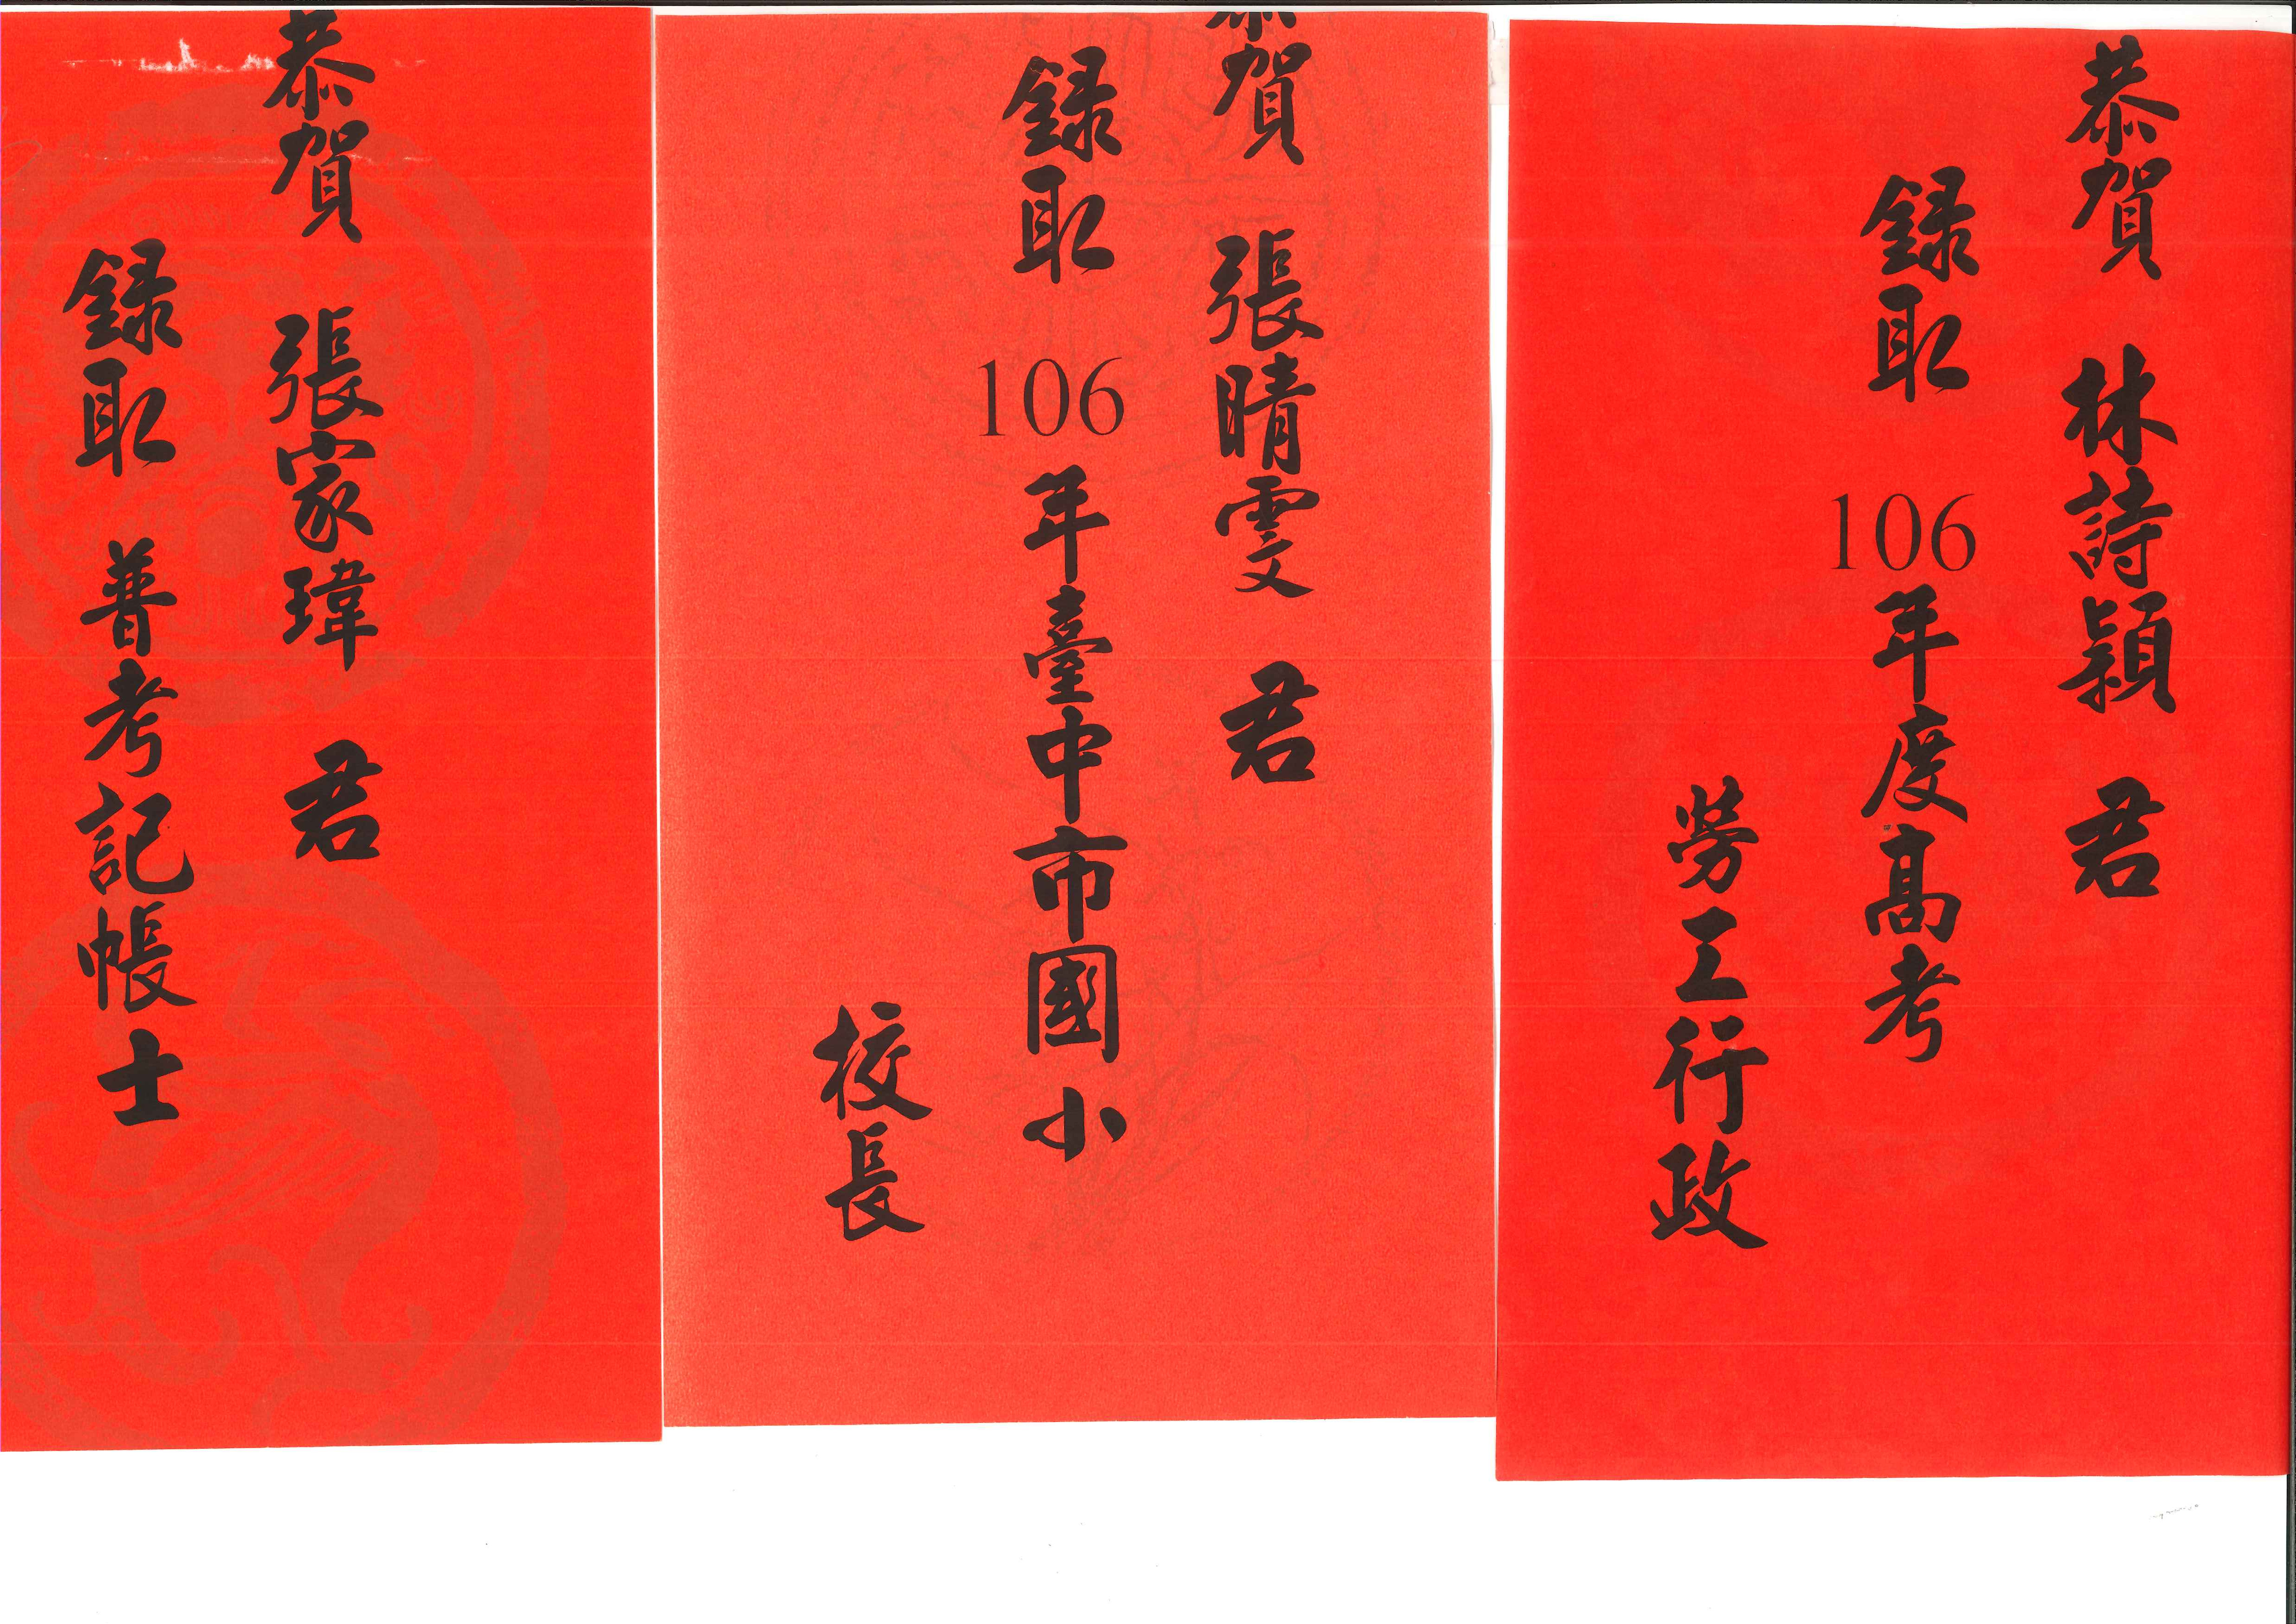 恭賀 林詩穎 君
錄取 106年度高考
勞工行政
恭賀 張晴雯 君
錄取 106年臺中市國小
校長
恭賀 張家瑋 君
錄取 普考記帳士